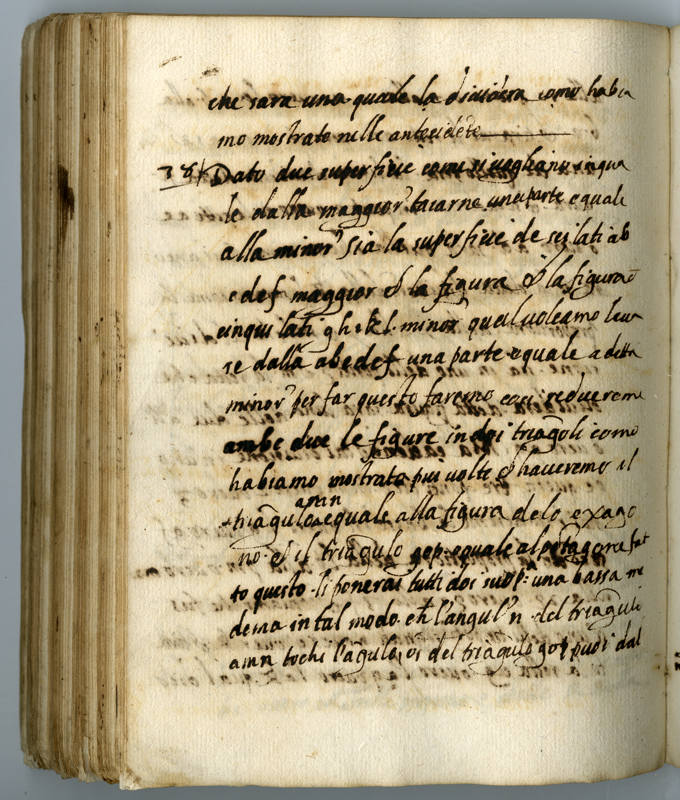 che sara una quale la dividera como habia
mo mostrato nelle antecidēte
38 Dato due superficie come si voglia no inequa
le dalla maggior tacarne una parte equale
alla minor Sia la superficie de sei lati ab
cdef maggior & la figura & la figura
cinqui lati ghikl minor quel voleamo leva
re dalla abcdef una parte equale a detta
minor per far questo faremo cosi redurem
ambe due le figure in doi triāgoli como
habiamo mostrato piu volte & haveremo il
triāgulo amn equale alla figura de lo exago
no & il triāgulo gop equale al pētagono fat
to questo li ponerai tutti doi sup.ª una bassa me
dema in tal modo che l'angul n del triāgulo
amn tochi l'āgulo o del triāgulo gop puoi dal